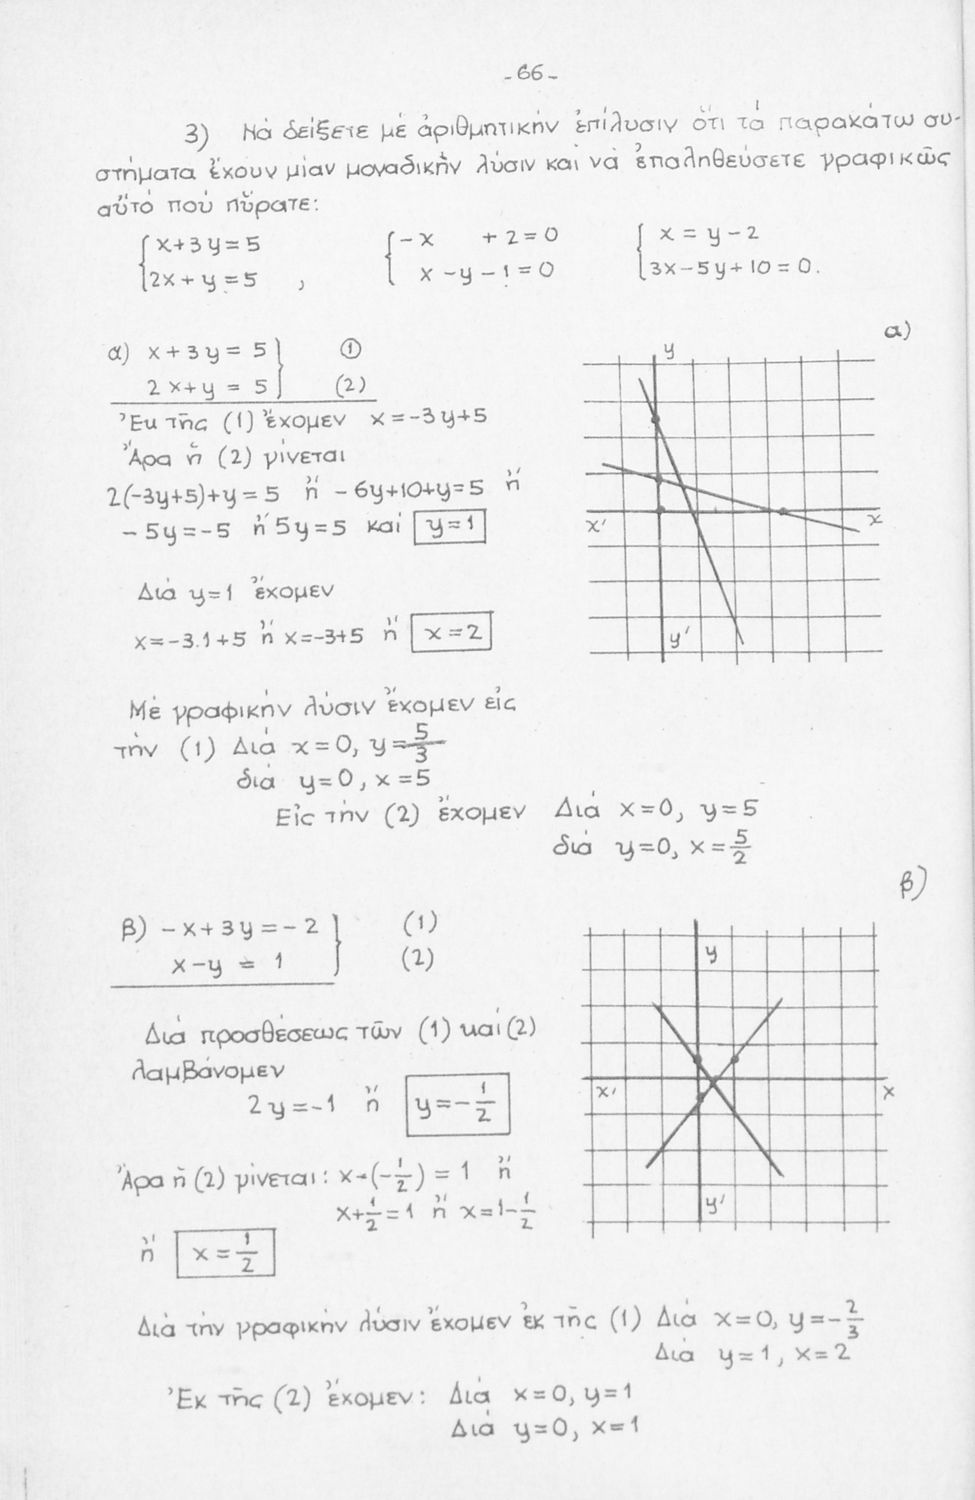 -66-
3) Νά δείξετε μέ ἀριθμητικήν ἐπίλυσιν ὅτι τά παρακάτω συ-
στήματα ἔχουν μίαν μοναδικήν λύσιν καί νά ἐπαληθεύσετε γραφικῶς
αὐτό πού ηὕρατε:
x+3y=5 -x +2=0 x = y-2
2x+y=5 , x-y-1=0 3x-5y+10=0.
α)
α) x+3y= 5 ①
2x+y = 5 (2)
Ἐκ τῆς (1) ἔχομεν x=-3y+5
Ἄρα ἡ (2) γίνεται
2(-3y+5)+y=5 ἤ -6y+10+y=5 ἤ
-5y=-5 ἤ 5y=5 καί y=1
y
x' x
y'
Διά y=1 ἔχομεν
x=-3.1+5 ἤ x=-3+5 ἤ x=2
Μέ γραφικήν λύσιν ἔχομεν εἰς
τήν (1) Διά x=0, y=5/3
διά y=0, x=5
Εἰς τήν (2) ἔχομεν Διά x=0, y=5
διά y=0, x=5/2
β)
β) -x+3y=-2 (1)
x-y = 1 (2)
y
x' x
y'
Διά προσθέσεως τῶν (1) καί (2)
λαμβάνομεν
2y=-1 ἤ y=-1/2
Ἄρα ἡ (2) γίνεται: x-(-1/2) = 1 ἤ
x+1/2=1 ἤ x=1-1/2
ἤ x=1/2
Διά τήν γραφικήν λύσιν ἔχομεν ἐκ τῆς (1) Διά x=0, y=-2/3
Διά y=1, x=2
Ἐκ τῆς (2) ἔχομεν: Διά x=0, y=1
Διά y=0, x=1